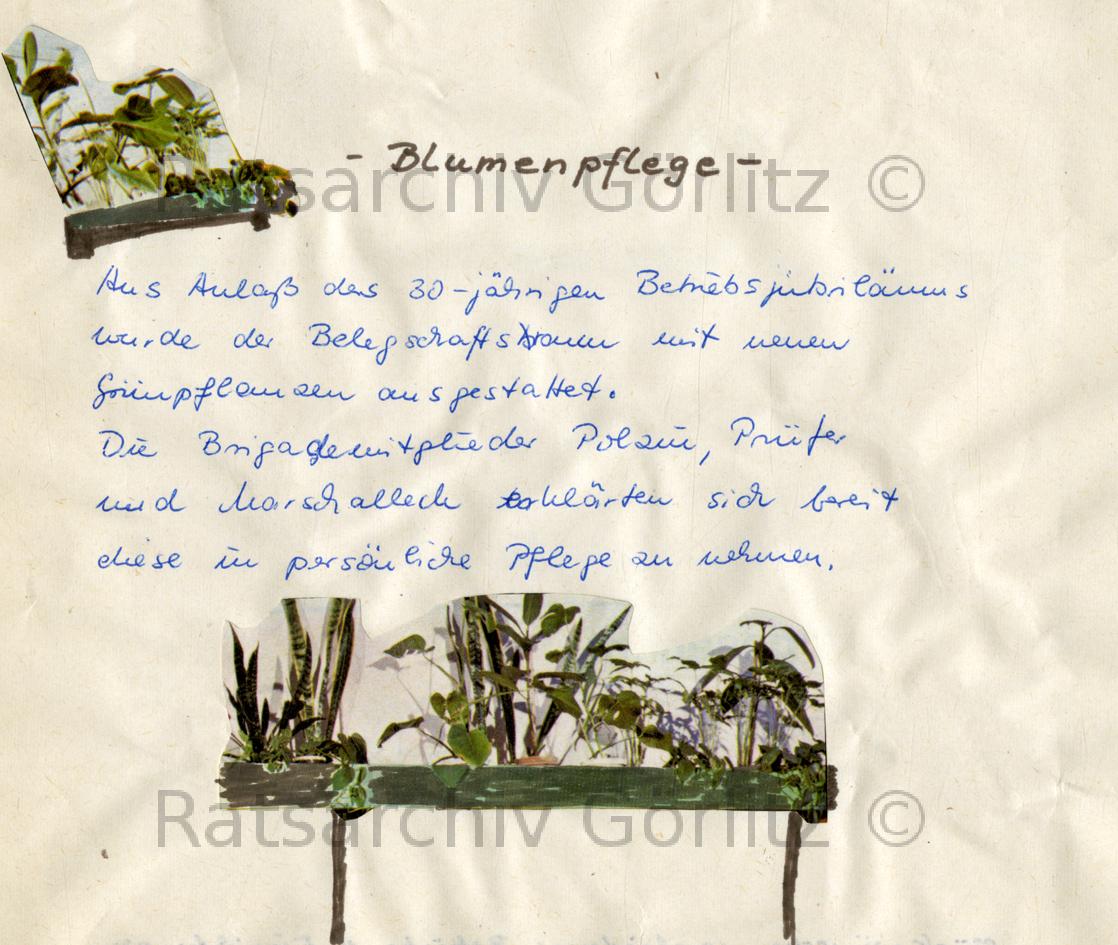 - Blumenpflege -
Ratsarchiv Görlitz ©
Aus Anlaß des 30-jährigen Betriebsjubiläums
wurde der Belegschaftsraum mit neuen
Grünpflanzen ausgestattet.
Die Brigademitglieder Polzin, Prüfer
und Marschalleck erklärten sich bereit
diese in persönliche Pflege zu nehmen.
Ratsarchiv Görlitz ©